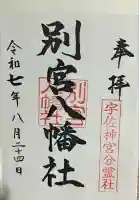 奉拝
宇佐神宮分霊社
別宮八幡社
令和七年八月二十四日